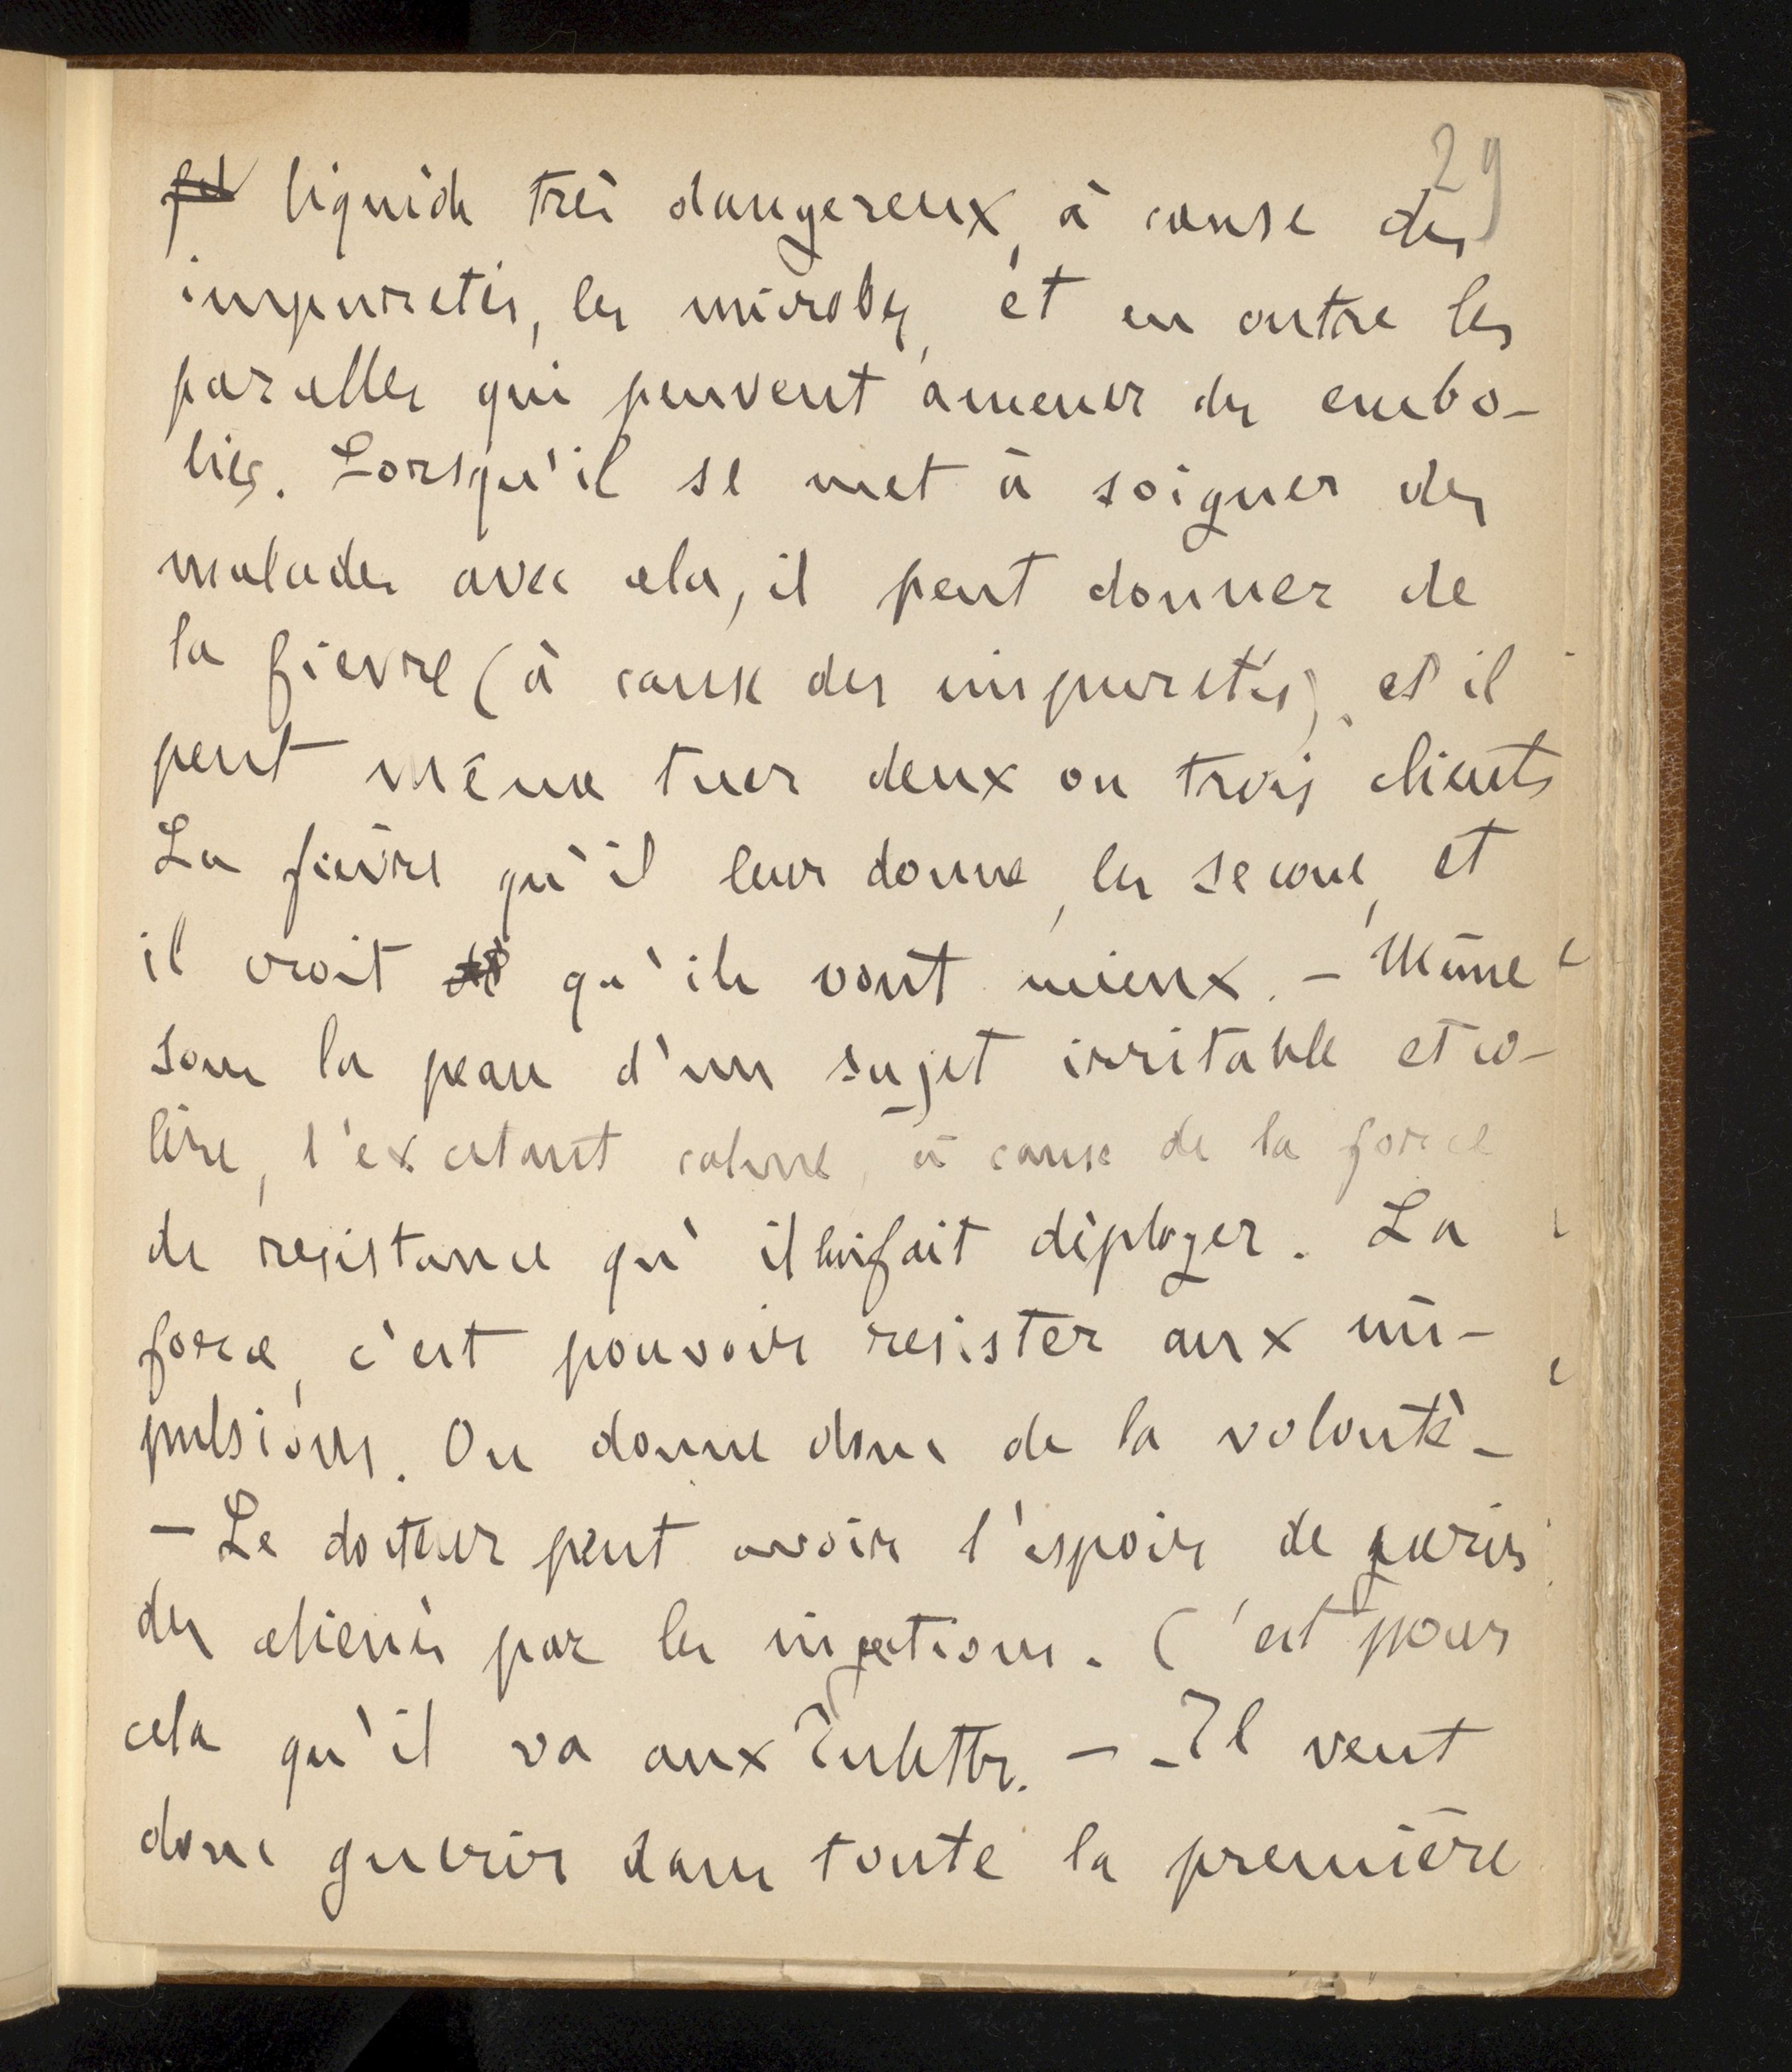 29
liquide très dangereux, à cause des
impuretés, les microbes, et en outre les
parcelles qui peuvent amener des embo-
lies. Lorsqu'il se met à soigner des
malades avec cela, il peut donner de
la fievre (à cause des impuretés). et il
peut même tuer deux ou trois clients
La fièvre qu'il leur donne, les secoue, et
il croit qu'ils vont mieux. - Même
sous la peau d'un sujet irritable et co-
lère, l'excitant calme, à cause de la force
de resistance qu'il lui fait déployer. La
force, c'est pouvoir resister aux im-
pulsions. On donne donc de la volonté -
- Le docteur peut avoir l'espoir de guerir
des alienés par les injections. C'est pour
cela qu'il va aux - - Il veut
donc guerir dans toute la première